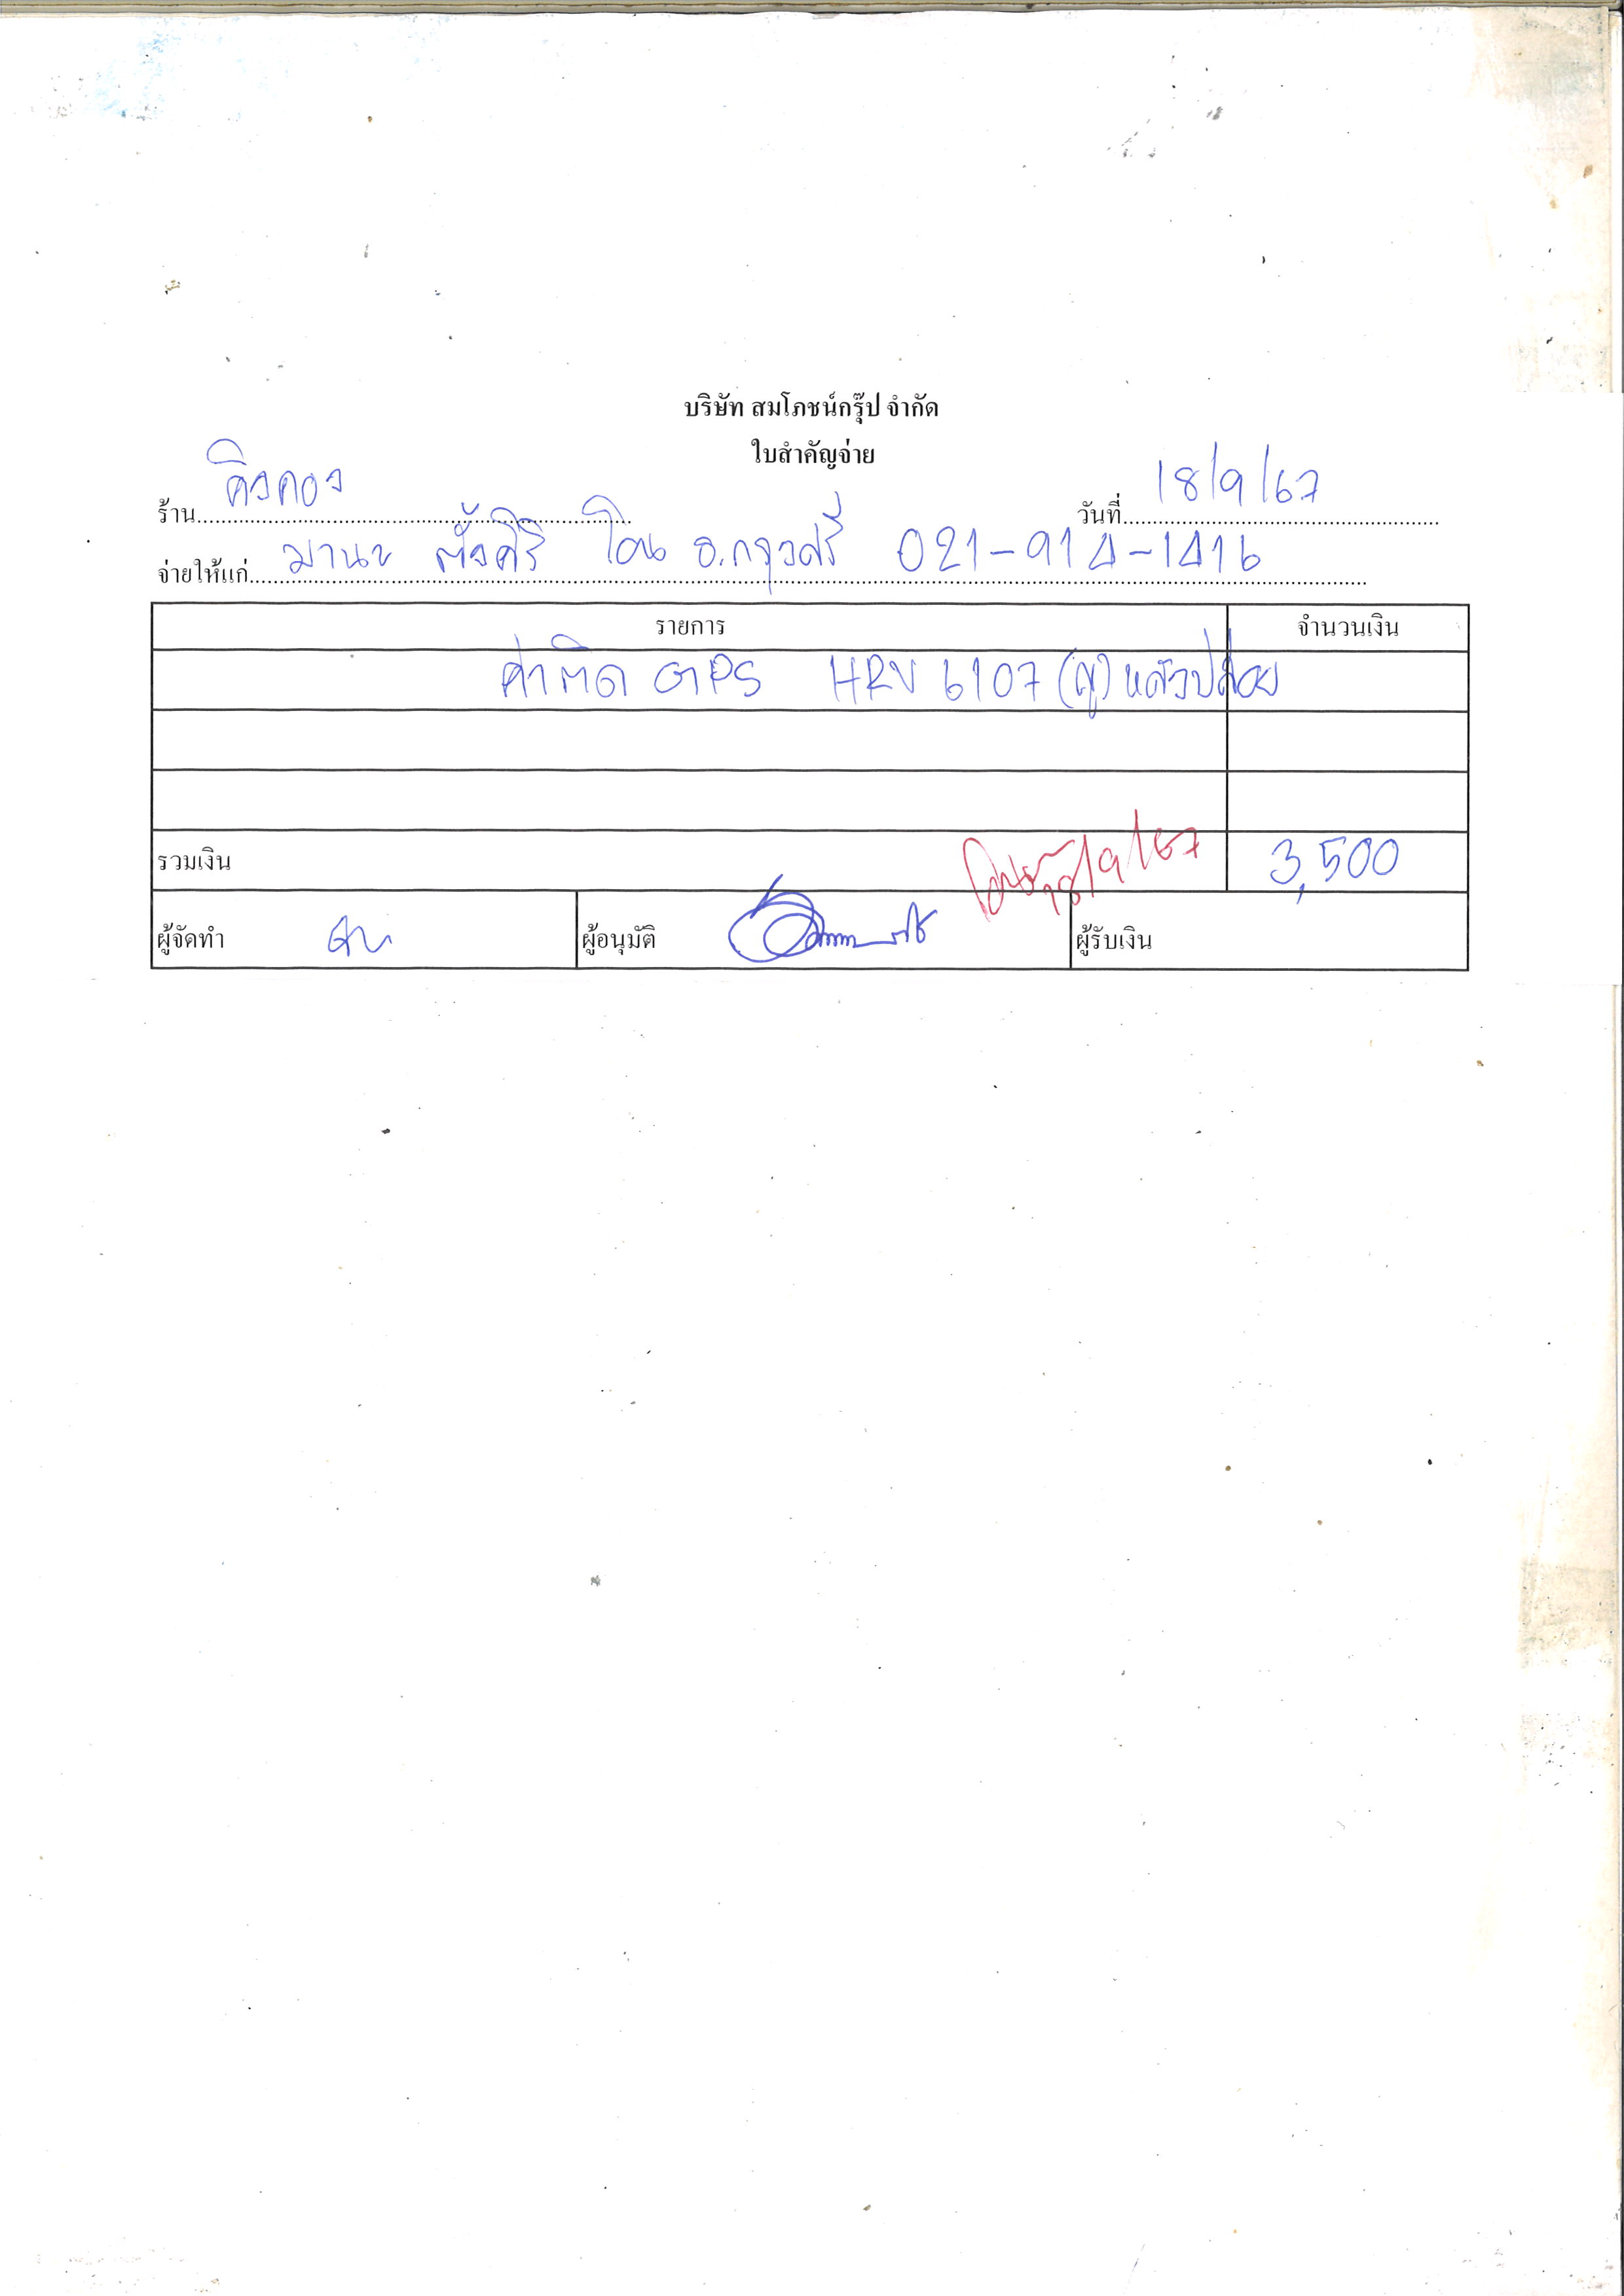 บริษัท สมโภชน์กรุ๊ป จำกัด
ใบสำคัญจ่าย
ร้าน คิงคอง วันที่ 18/9/67
จ่ายให้แก่ มานะ ตั้งศิริ โอน ธ.กรุงศรี 021-914-1416
รายการ จำนวนเงิน
ค่าติด GPS HRV 6107 (ญ) หลังปล่อย
รวมเงิน 18/9/67 3,500
ผู้จัดทำ ผู้อนุมัติ ผู้รับเงิน